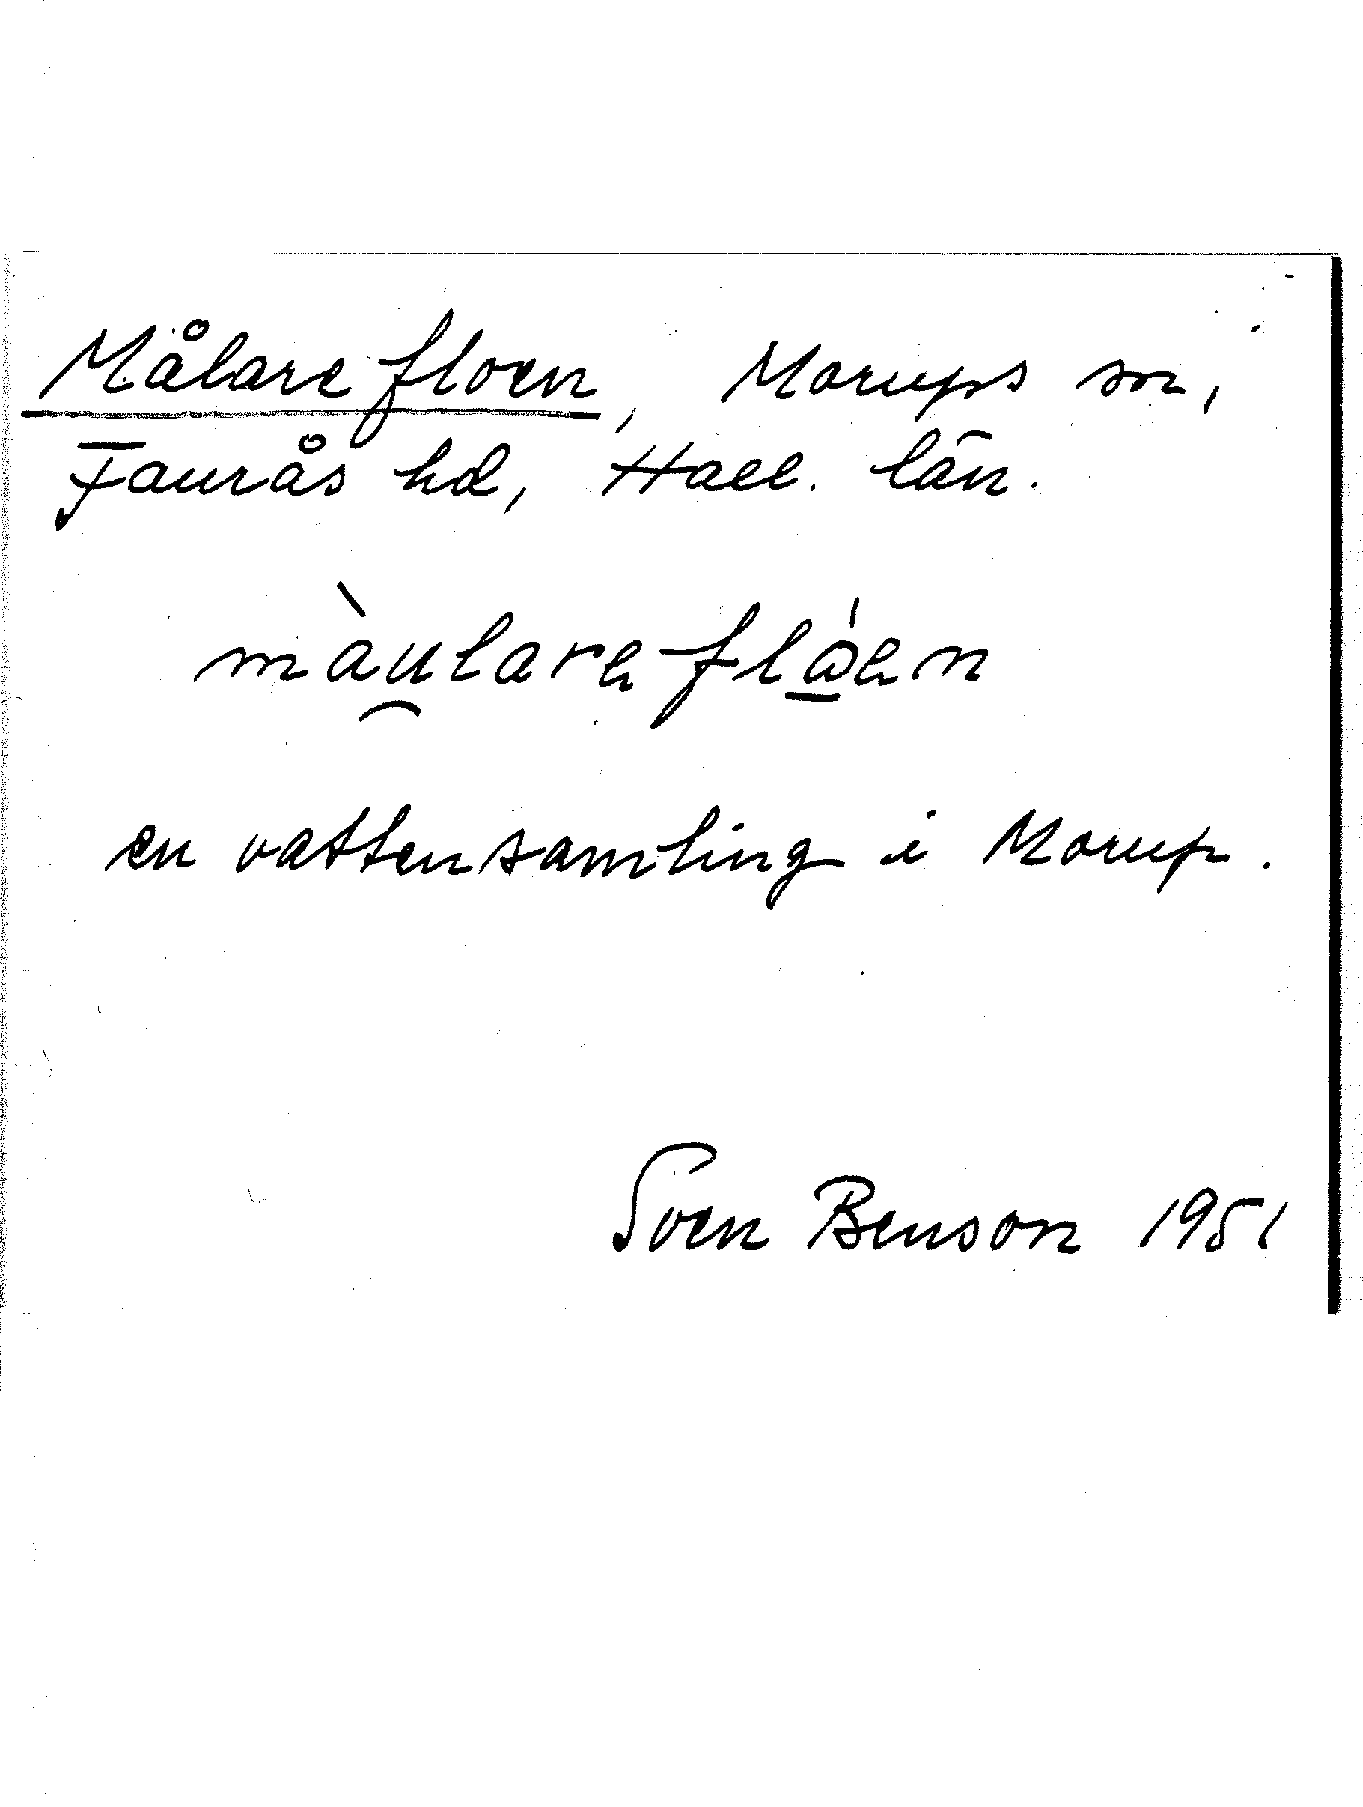 Målarefloen, Morups sn,
Faurås hd, Hall. län.
màu̯larəflώ̲ən
en vattensamling i Morup.
Sven Benson 1951